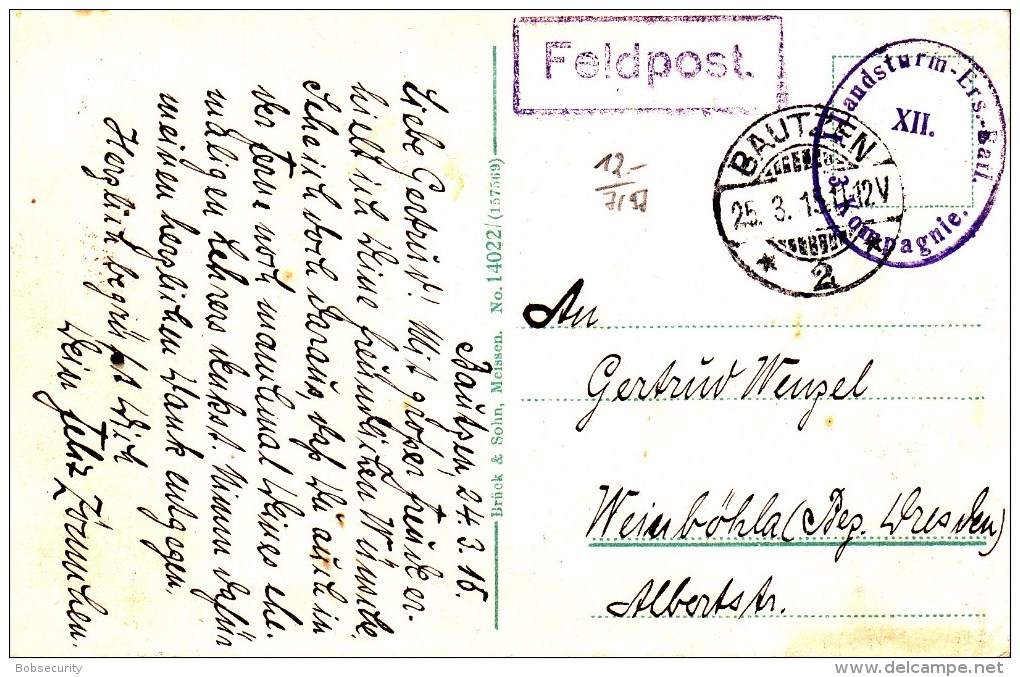 Feldpost.
Landsturm-Ers.-Batl.
XII.
3. Kompagnie.
BAUTZEN
25. 3. 15. 11-12V
* 2 *
12.-
An
Gertrud Wenzel
Weinböhla (Bez. Dresden)
Albertstr.
Brück & Sohn, Meissen. No. 14022/(157569)
Bautzen, 24.3.15.
Liebe Gertrud! Mit großer Freude er-
hielt ich Deine freundlichen Wünsche.
Ich daraus, daß Du auch in
der Ferne noch manchmal Deines ehe-
maligen Lehrers denkst. Nimm dafür
meinen herzlichen Dank entgegen.
Herzlich begrüßt Dich
Dein Felix
Bobsecurity
delcampe.net